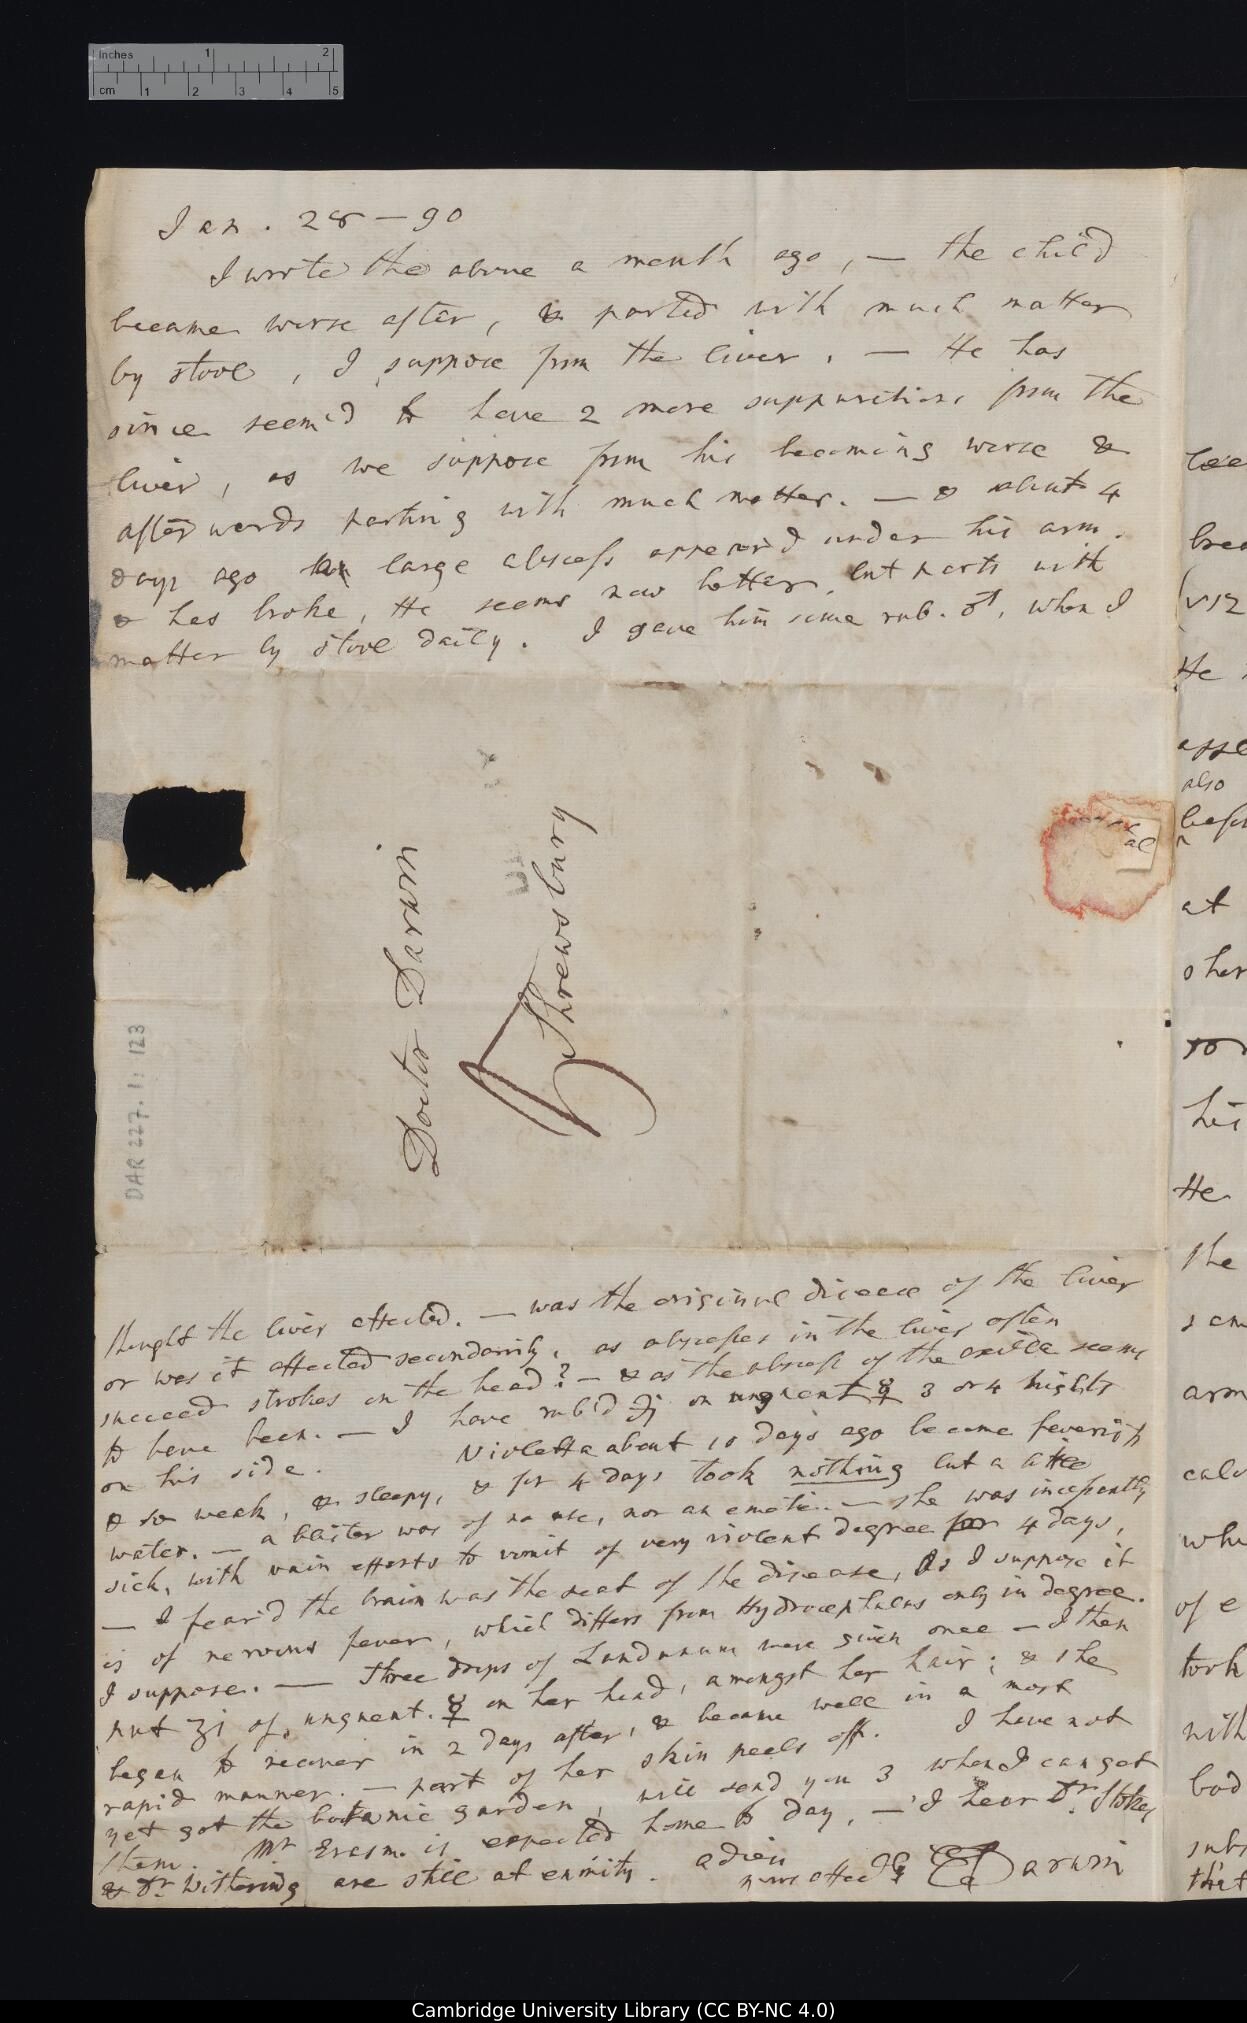 Inches 1 2
cm 1 2 3 4 5
Jan. 28 – 90
I wrote the above a month ago, — the child
became worse after, & parted with much matter
by stool, I suppose from the liver. — He has
since seem'd to have 2 more suppurations from the
liver, as we suppose from his becoming worse &
afterwards parting with much matter. — & about 4
days ago a large abscess appear'd under his arm.
& has broke, He seems now better, but parts with
matter by stool daily. I gave him some rub. ♂, when I
Doctor Darwin
Shrewsbury
DAR 227.1: 123
thought the liver affected. — was the original disease of the liver
or was it affected secondarily, as abscesses in the liver often
succeed strokes on the head? — & as the abscess of the axilla seems
to have been. — I have rub'd ʒj on unguent ☿ 3 or 4 nights
on his side. Violetta about 10 days ago became feverish
& so weak, & sleepy, & for 4 days took nothing but a little
water. — a blister was of no use, nor an emetic. — she was incessantly
sick, with vain efforts to vomit of very violent degree for 4 days,
— I fear'd the brain was the seat of the disease, As I suppose it
is of nervous fever, which differs from Hydrocephalus only in degree.
I suppose. — Three drops of Laudanum were given once — I then
put ʒi of unguent. ☿ on her head, amongst her hair; & she
began to recover in 2 days after, & became well in a most
rapid manner. — part of her skin peels off. I have not
yet got the botanic garden, will send you 3 when I can get
them. Mr Erasm. is expected home to day, — I hear Dr. Stokes
& Dr Withering are still at enmity. adieu
E Darwin
bree
viz
He
also
at
his
He
the
arm
of e
took
with
bod
that
Cambridge University Library (CC BY-NC 4.0)